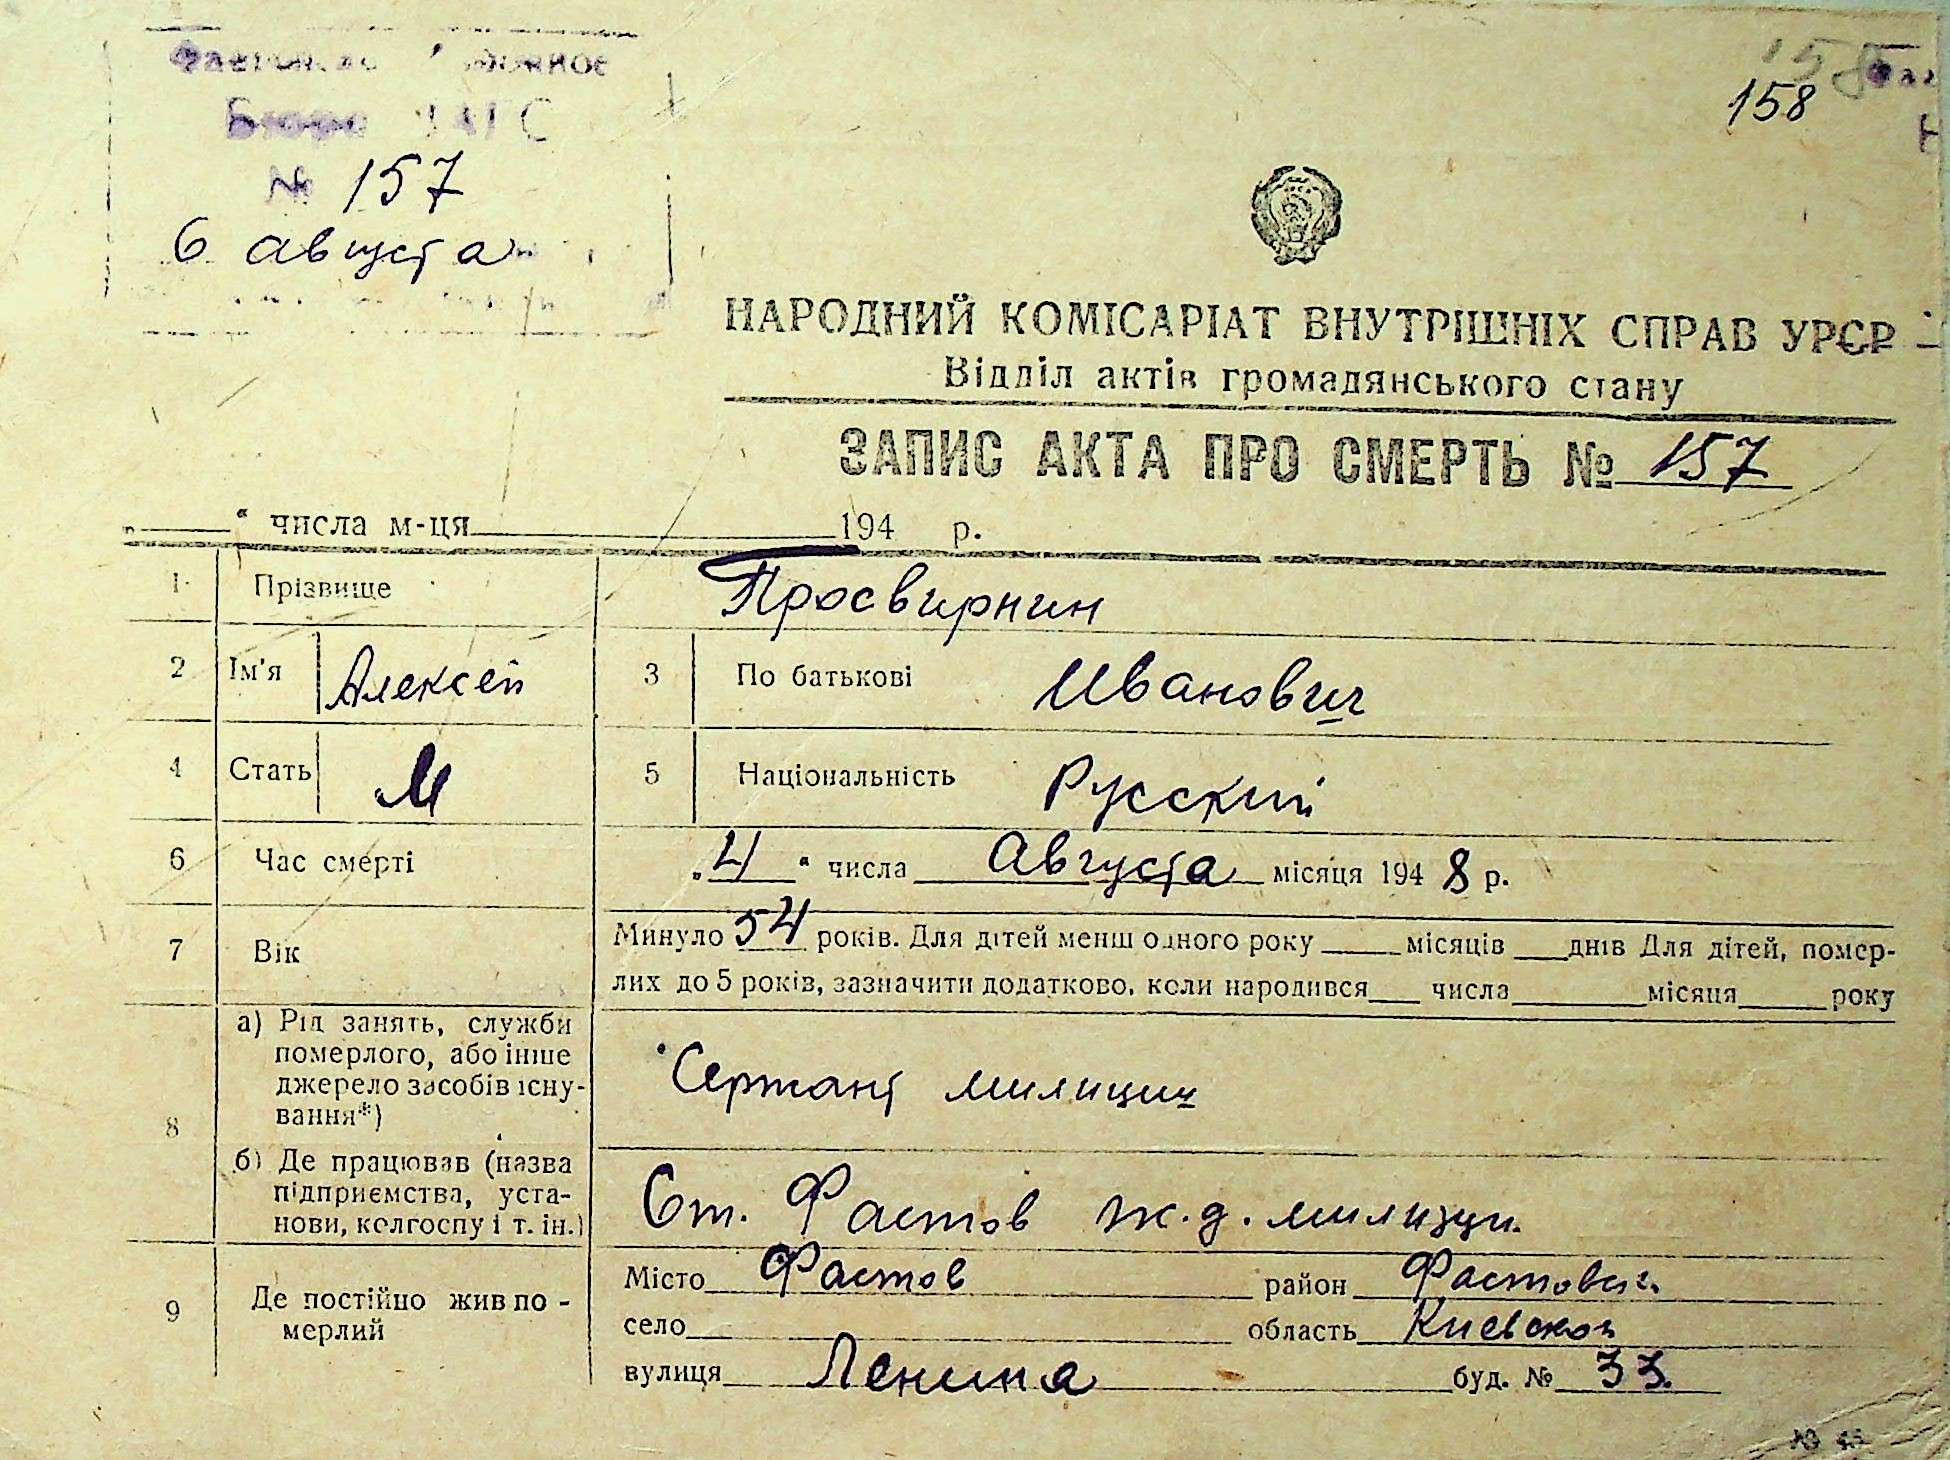 Бюро ЗАГС
№ 157
6 августа
158
158
НАРОДНИЙ КОМІСАРІАТ ВНУТРІШНІХ СПРАВ УРСР
Відділ актів громадянського стану
ЗАПИС АКТА ПРО СМЕРТЬ № 157
„ “ числа м-ця 194 р.
1 Прізвище Просвирнин
2 Ім'я Алексей 3 По батькові Иванович
4 Стать М 5 Національність Русский
6 Час смерті „4“ числа Августа місяця 1948 р.
7 Вік Минуло 54 років. Для дітей менш одного року місяців днів Для дітей, помер-
лих до 5 років, зазначити додатково, коли народився числа місяця року
8 а) Рід занять, служби
померлого, або інше
джерело засобів існу-
вання*) Сержант милиции
б) Де працював (назва
підприємства, уста-
нови, колгоспу і т. ін.) Ст. Фастов ж.д. милиции.
9 Де постійно жив по-
мерлий
Місто Фастов район Фастовск.
село область Киевской
вулиця Ленина буд. № 33.